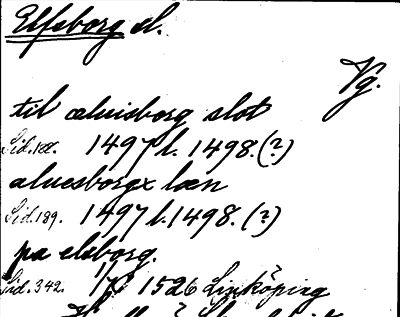 Elfsborg sl.
Vg.
til æluisborg slot
Sid. 188. 1497 l. 1498. (?)
aluesborgx læn
Sid. 189. 1497 l. 1498. (?)
pa elsborg.
Sid. 342. 1/7 1526 Linköping